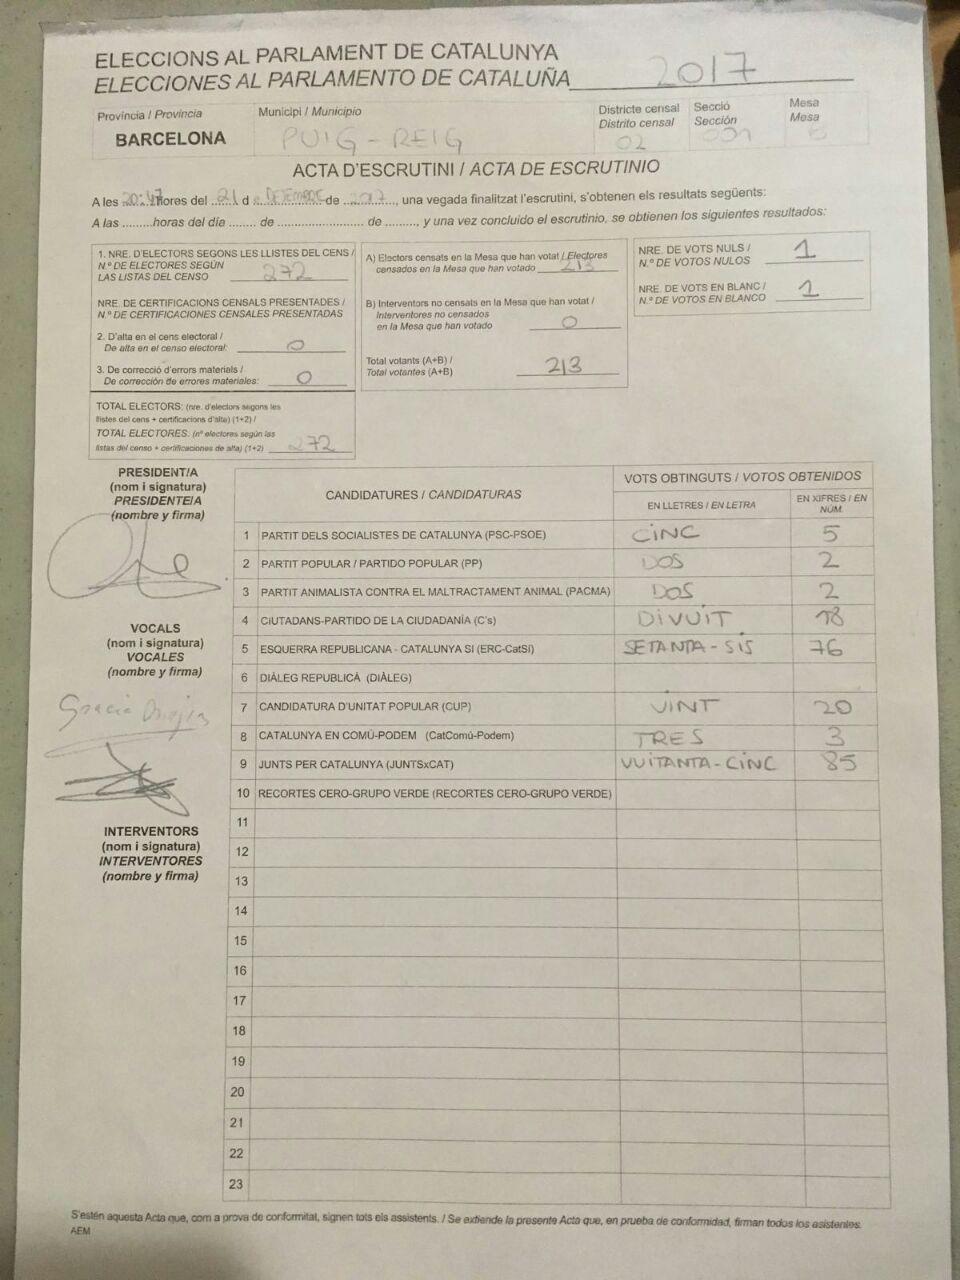 ELECCIONS AL PARLAMENT DE CATALUNYA
ELECCIONES AL PARLAMENTO DE CATALUÑA 2017
Província / Provincia
BARCELONA
Municipi / Municipio
PUIG-REIG
Districte censal
Distrito censal
02
Secció
Sección
001
Mesa
Mesa
ACTA D'ESCRUTINI / ACTA DE ESCRUTINIO
A les 20:47 hores del 21 d DESEMBRE de 2017, una vegada finalitzat l'escrutini, s'obtenen els resultats següents:
A las .........horas del día ........ de ........................ de ........., y una vez concluido el escrutinio, se obtienen los siguientes resultados:
1. NRE. D'ELECTORS SEGONS LES LLISTES DEL CENS /
N.º DE ELECTORES SEGÚN
LAS LISTAS DEL CENSO 272
NRE. DE CERTIFICACIONS CENSALS PRESENTADES /
N.º DE CERTIFICACIONES CENSALES PRESENTADAS
2. D'alta en el cens electoral /
De alta en el censo electoral: 0
3. De correcció d'errors materials /
De corrección de errores materiales: 0
TOTAL ELECTORS: (nre. d'electors segons les
llistes del cens + certificacions d'alta) (1+2) /
TOTAL ELECTORES: (nº electores según las
listas del censo + certificaciones de alta) (1+2) 272
A) Electors censats en la Mesa que han votat / Electores
censados en la Mesa que han votado 213
B) Interventors no censats en la Mesa que han votat /
Interventores no censados
en la Mesa que han votado 0
Total votants (A+B) /
Total votantes (A+B) 213
NRE. DE VOTS NULS /
N.º DE VOTOS NULOS 1
NRE. DE VOTS EN BLANC /
N.º DE VOTOS EN BLANCO 1
PRESIDENT/A
(nom i signatura)
PRESIDENTE/A
(nombre y firma)
VOCALS
(nom i signatura)
VOCALES
(nombre y firma)
INTERVENTORS
(nom i signatura)
INTERVENTORES
(nombre y firma)
CANDIDATURES / CANDIDATURAS
VOTS OBTINGUTS / VOTOS OBTENIDOS
EN LLETRES / EN LETRA
EN XIFRES / EN
NÚM.
1 PARTIT DELS SOCIALISTES DE CATALUNYA (PSC-PSOE) CINC 5
2 PARTIT POPULAR / PARTIDO POPULAR (PP) DOS 2
3 PARTIT ANIMALISTA CONTRA EL MALTRACTAMENT ANIMAL (PACMA) DOS 2
4 CIUTADANS-PARTIDO DE LA CIUDADANÍA (C's) DIVUIT 18
5 ESQUERRA REPUBLICANA - CATALUNYA SÍ (ERC-CatSí) SETANTA-SIS 76
6 DIÀLEG REPUBLICÀ (DIÀLEG)
7 CANDIDATURA D'UNITAT POPULAR (CUP) VINT 20
8 CATALUNYA EN COMÚ-PODEM (CatComú-Podem) TRES 3
9 JUNTS PER CATALUNYA (JUNTSxCAT) VUITANTA-CINC 85
10 RECORTES CERO-GRUPO VERDE (RECORTES CERO-GRUPO VERDE)
11
12
13
14
15
16
17
18
19
20
21
22
23
S'estén aquesta Acta que, com a prova de conformitat, signen tots els assistents. / Se extiende la presente Acta que, en prueba de conformidad, firman todos los asistentes.
AEM